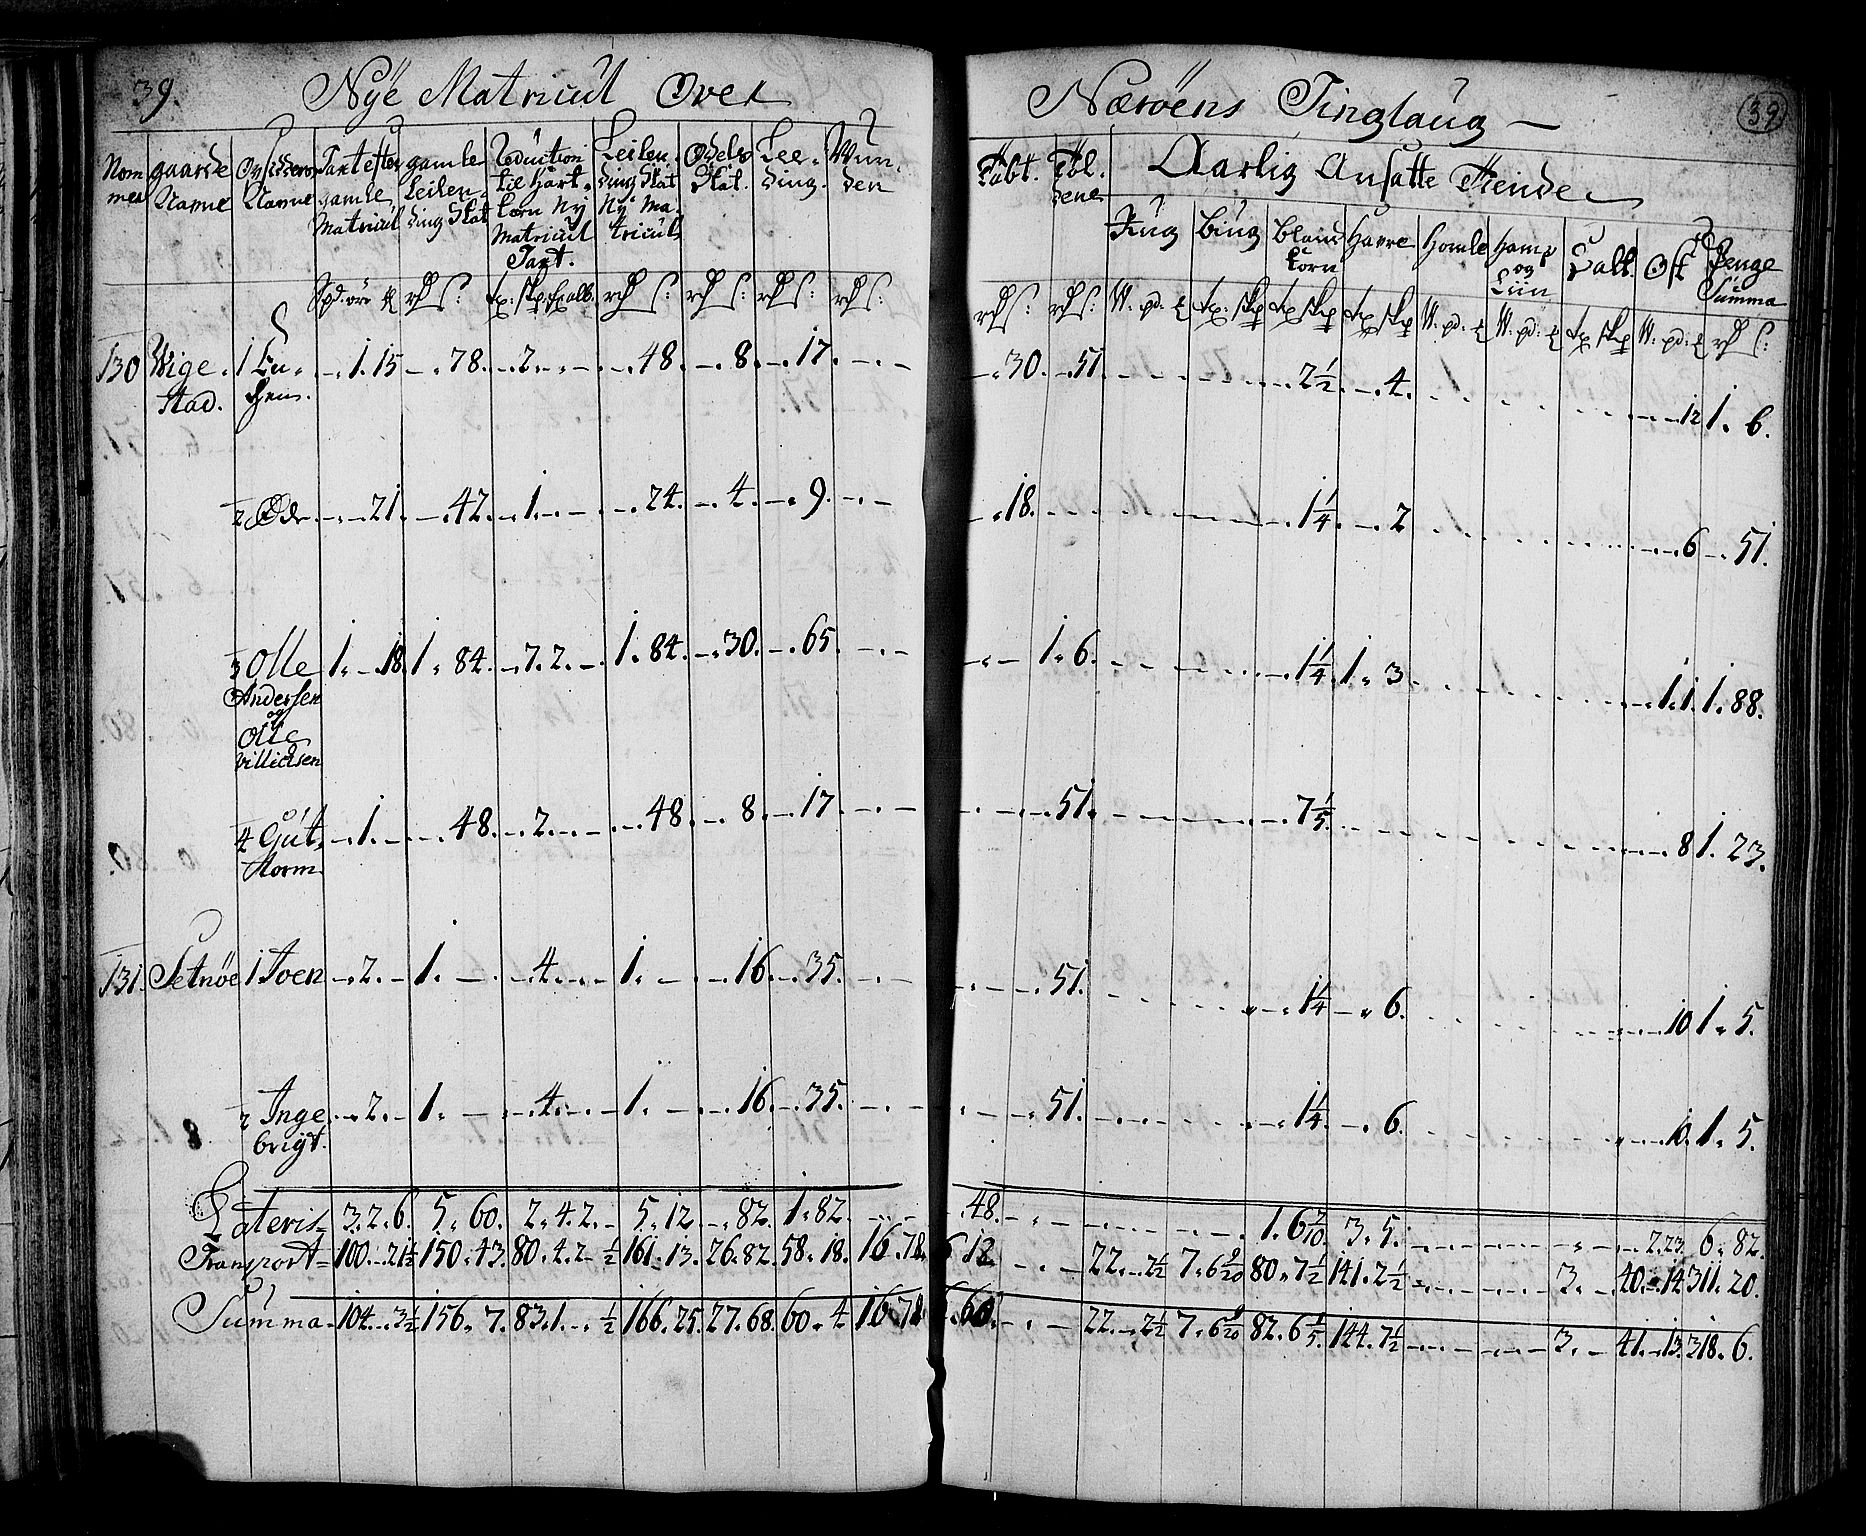 39. Nÿe Matricul Over Nærøens Tinglaug — 39
Nom mer | gaarde Navne | Opsidderes Navne | Taxt efter gamle Matricul | gamle Leilendings Skat | Reduction til Hart Korn Nÿ Matricul Taxt. | Leilendings Skat Nÿ Matricul | Odels Skat. | Lee ding. | Wun den | Tabt. | Føl. dene | Aarlig Ansatte Tiende
Rug | Biug | Bland korn | Havre | Homle | Hamp og Liin | Salt. | Ost | Penge Summa
130 Wige stad. 1 Eu hen. - . 1. 15 - . 78. - . 2. - . - - . 48. - . 8. - . 17. - . - - . 30. - . 51. 2½. - . 4. 12 1. 6.
2 Ode - . - . 21. - . 42. - . 1. - . - - . 24. - . 4. - . 9. - . - - . 18. 1¼. - . 2 6 - . 51.
3 Olle 1. - . 18. 1. 84. - . 7. 2. - 1. 84. - . 30. - . 65. - . - - . - 1. 6. 1¼. 1. 3 1. 1. 1. 88.
Andersen
og
Olle
Villichsen
4 Gut - . 1. - . - . 48. - . 2. - . - - . 48. - . 8. - . 17. - . - - . 51. 7⅕. 8 1. 23.
torm
131. Setnøe 1 Joen - . 2. - 1. - - . 4. - . - 1. - - . 16. - . 35. - . - - . 51. 1¼ - . 6. 10 1. 5.
2 Inge - . 2. - 1. - - . 4. - . - 1. - - . 16. - . 35. - . - - . 51. 1¼. - . 6. 10. 1. 5.
brigt.
Lateris 3. 2. 6. 5. 60. 2. 4. 2. 5. 12. - . 82. 1. 82. - . 48. - . - 1. 6 7/10 3. 5. 2. 23. 6. 82.
Transport 100. - . 21½ 150. 43. 80. 4. 2 ½ 161. 13. 26. 82. 58. 18. 16. 78. 12. - . - 22. - . 2½ 7. 6 9/20 80. 7½ 141. 2½ 3. - 40. - . 14. 311. 20.
Summa 104. - . 3½ 156. 7. 83. 1. - . ½ 166. 25. 27. 68. 60. 4 16. 78. 60. - . - 22. - . 2½ 7. 6 9/20 82. 6⅕ 144. 7½ 3. - 41. - . 13. 318. 6.